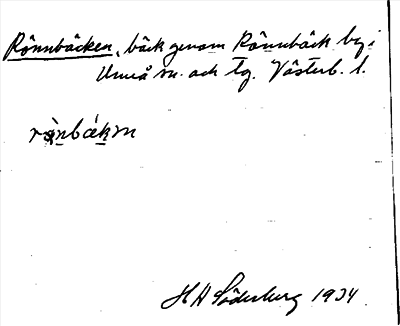 Rönnbäcken, bäck genom Rönnbäck by i
Umeå sn. och tg. Västerb. l.
rø̀nbákm
H A Söderberg 1934